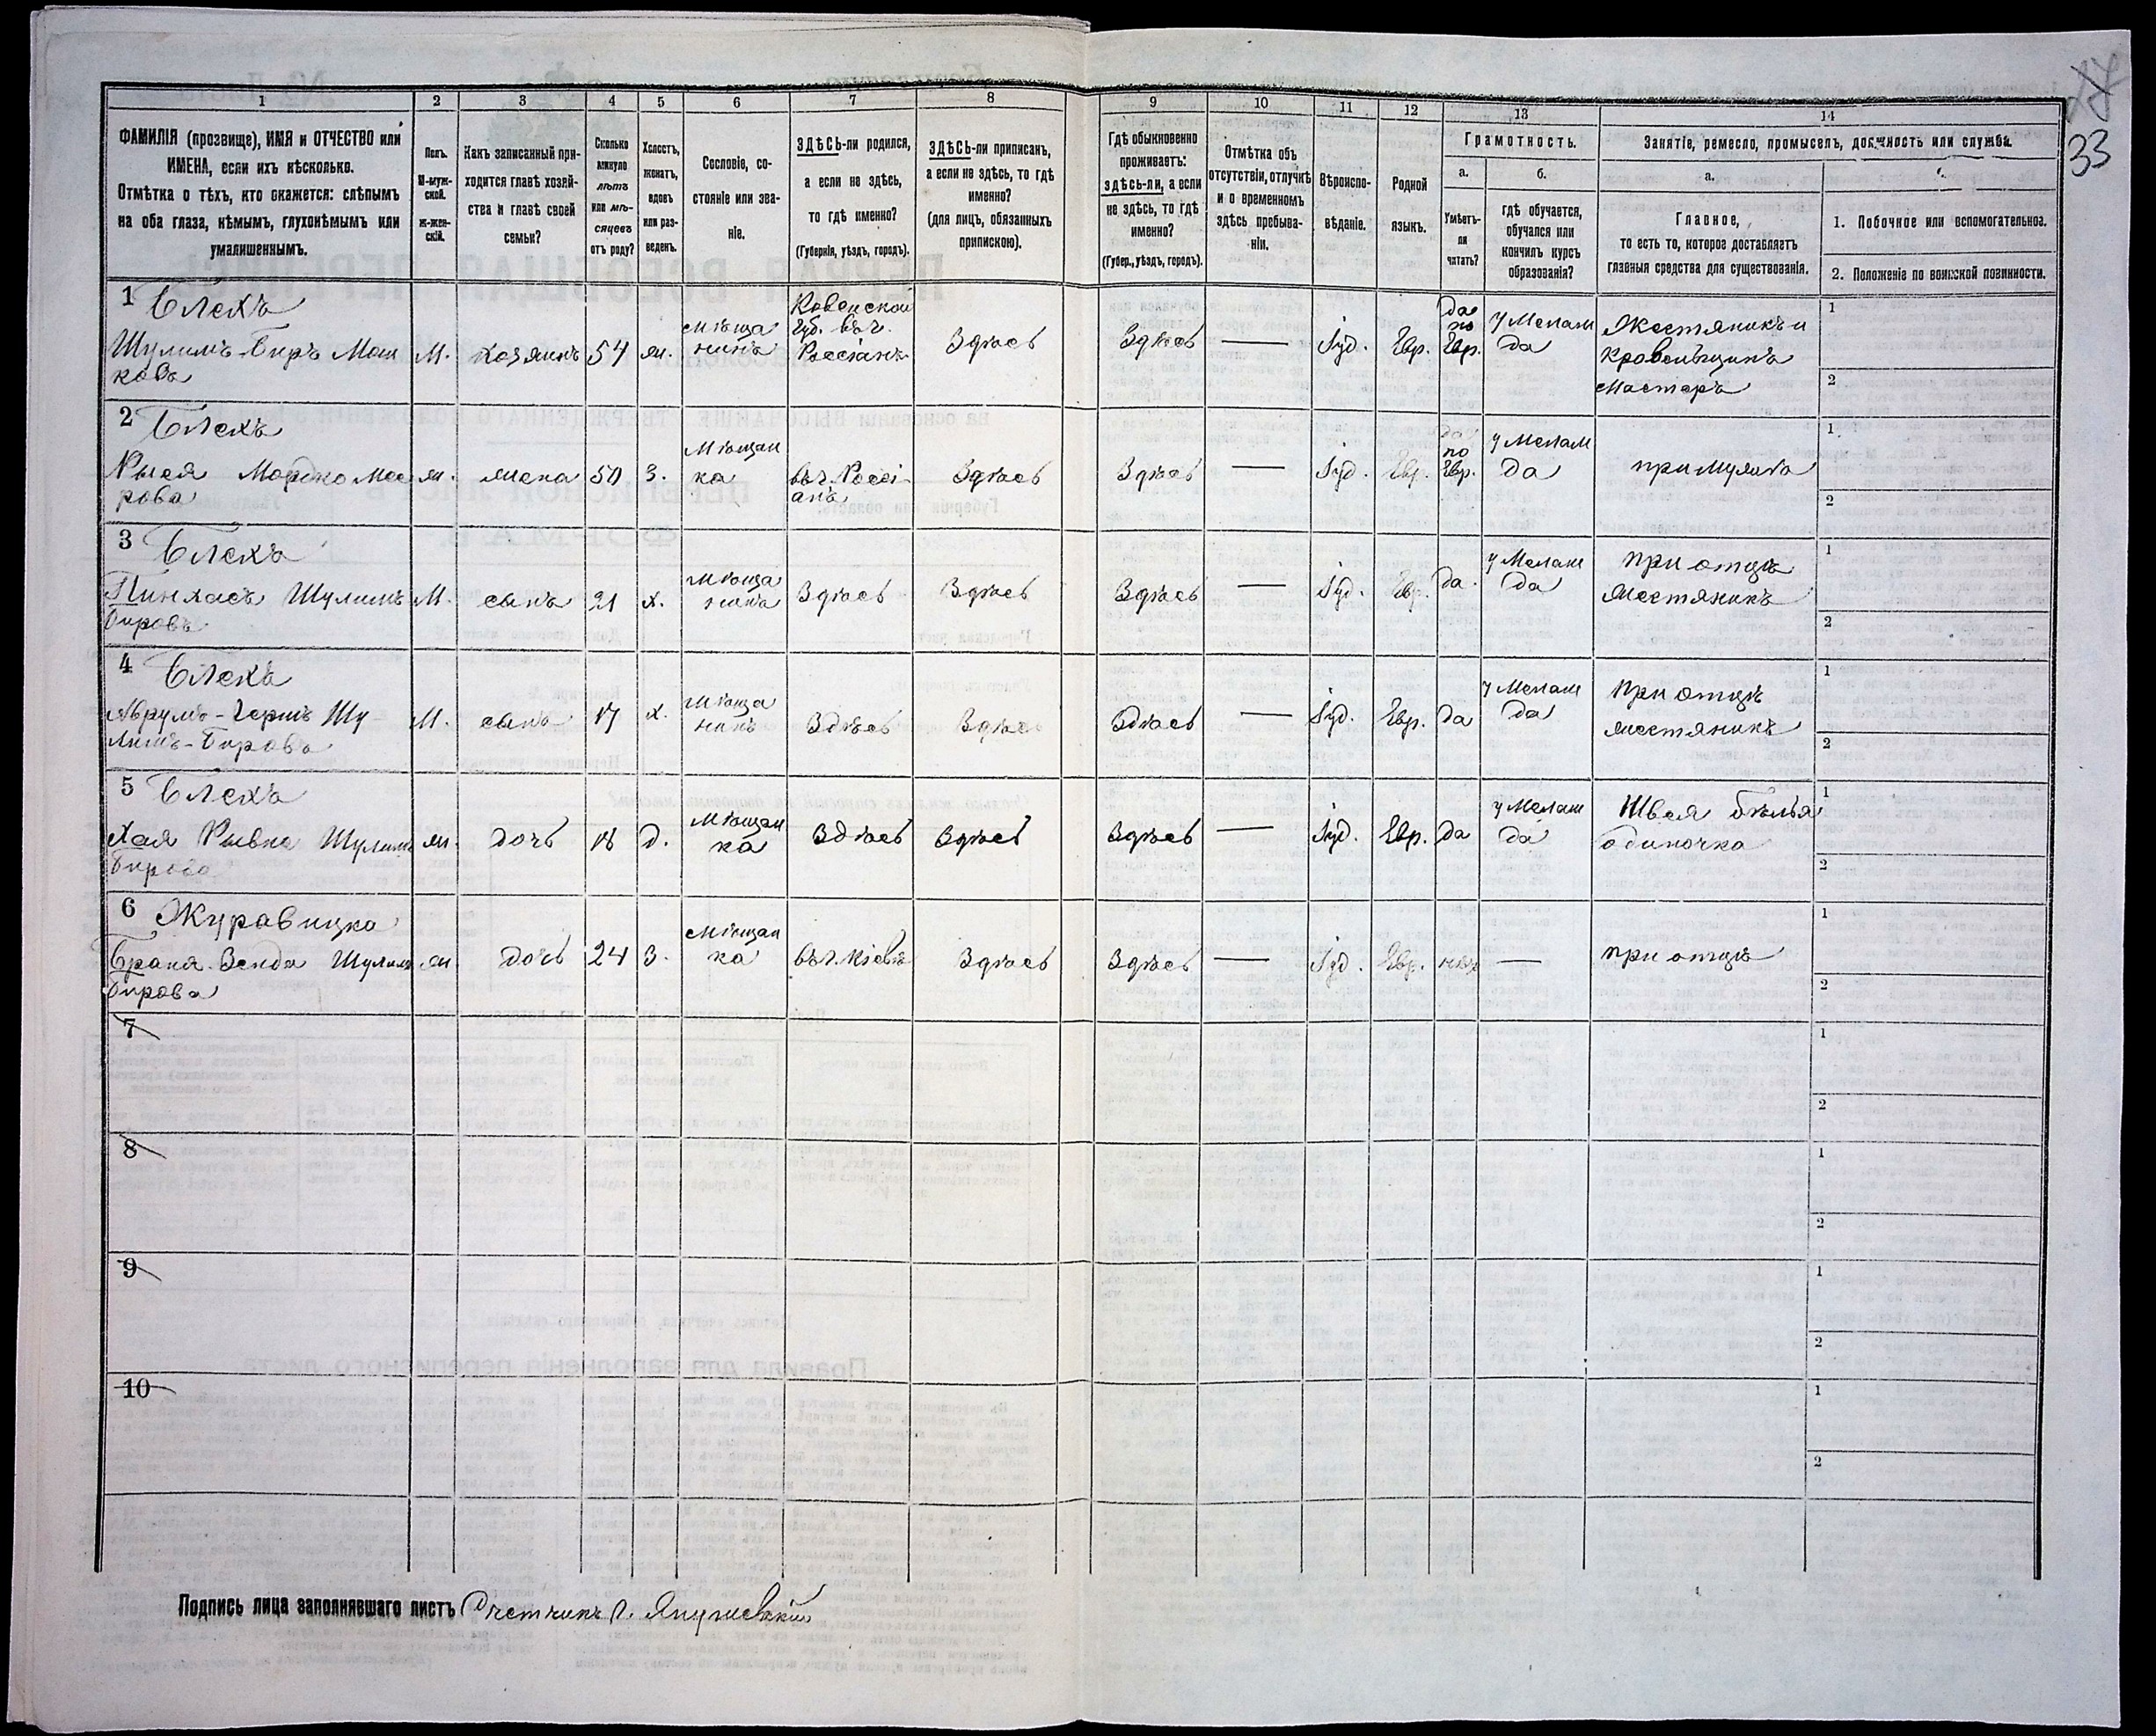 33
1 2 3 4 5 6 7 8 9 10 11 12 13 14
ФАМИЛІЯ (прозвище), ИМЯ и ОТЧЕСТВО или
ИМЕНА, если ихъ нѣсколько.
Отмѣтка о тѣхъ, кто окажется: слѣпымъ
на оба глаза, нѣмымъ, глухонѣмымъ или
умалишеннымъ.
Полъ.
М-муж-
ской.
Ж-жен-
скій.
Какъ записанный при-
ходится главѣ хозяй-
ства и главѣ своей
семьи?
Сколько
минуло
лѣтъ
или мѣ-
сяцевъ
отъ роду?
Холостъ,
женатъ,
вдовъ
или раз-
веденъ.
Сословіе, со-
стояніе или зва-
ніе.
ЗДѢСЬ-ли родился,
а если не здѣсь,
то гдѣ именно?
(Губернія, уѣздъ, городъ).
ЗДѢСЬ-ли приписанъ,
а если не здѣсь, то гдѣ
именно?
(для лицъ, обязанныхъ
припискою).
Гдѣ обыкновенно
проживаетъ:
здѣсь-ли, а если
не здѣсь, то гдѣ
именно?
(Губер., уѣздъ, городъ).
Отмѣтка объ
отсутствіи, отлучкѣ
и о временномъ
здѣсь пребыва-
ніи.
Вѣроиспо-
вѣданіе.
Родной
языкъ.
Грамотность.
а.
Умѣетъ-
ли
читать?
б.
гдѣ обучается,
обучался или
кончилъ курсъ
образованія?
Занятіе, ремесло, промыселъ, должность или служба.
а.
Главное,
то есть то, которое доставляетъ
главныя средства для существованія.
1. Побочное или вспомогательное.
2. Положеніе по воинской повинности.
1 Блехъ
Шулимъ-Биръ
М. хозяинъ 54 ж.
мѣща
нинъ
Ковенской
Губ. въ г.
Россіанъ
Здѣсь Здѣсь — Іуд. Евр.
да
по
Евр.
у Мелам
да
Жестяникъ и
кровельщикъ
мастеръ
1
2
2 Блехъ
ж. жена 50 З.
Мѣщан
ка
въ г. Россі-
анъ
Здѣсь Здѣсь — Іуд. Евр.
да
по
Евр.
у Мелам
да
при мужѣ
1
2
3 Блехъ
Пинхасъ Шулимъ
Бировъ
М. сынъ 21 х.
мѣща
нинъ
Здѣсь Здѣсь Здѣсь — Іуд. Евр. да
у Мелам
да
при отцѣ
жестяникъ
1
2
4 Блехъ
Абрумъ-Гершъ Шу
лимъ-Бировъ
М. сынъ 17 х.
мѣща
нинъ
Здѣсь Здѣсь Здѣсь — Іуд. Евр. да
у Мелам
да
при отцѣ
жестяникъ
1
2
5 Блехъ
Хая Рывка Шулимъ
Бирова
ж. дочь 18 д.
Мѣщан
ка
Здѣсь Здѣсь Здѣсь — Іуд. Евр. да
у Мелам
да
Швея бѣлья
одиночка
1
2
6 Журавицка
Браня-Зенда Шулимъ
Бирова
ж. дочь 24 З.
Мѣщан
ка
въ г. Кіевѣ Здѣсь Здѣсь — Іуд. Евр. нѣтъ — при отцѣ
1
2
7
1
2
8
1
2
9
1
2
10
1
2
Подпись лица заполнявшаго листъ Счетчикъ